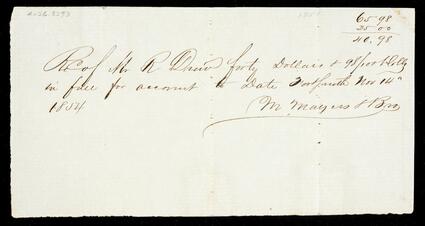 65 98
25 00
40,98
Recd of Mr R forty Dollars & 98/100 Dolls
in full for account to Date Fort Smith Nov 14th
1854
M. Mayers & Bro